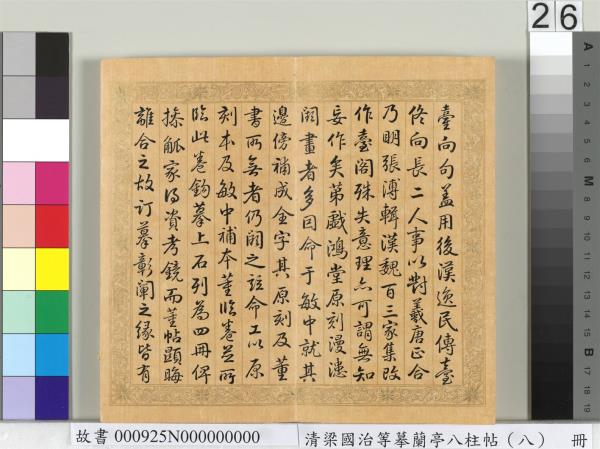 臺向句蓋用後漢逸民傳臺
佟向長二人事以對羲唐正合
乃明張溥輯漢魏百三家集改
作臺閣殊失意理亦可謂無知
妄作矣第戲鴻堂原刻漫漶
闕畫者多因命于敏中就其
邊傍補成全字其原刻及董
書所無者仍闕之茲命工以原
刻本及敏中補本董臨卷並所
臨此卷鉤摹上石列為四冊俾
操觚家得資考鏡而董帖顯晦
離合之故訂摹彰闡之緣皆有
26
A 1 2 3 4 5 6 7 M 8 9 10 11 12 13 14 15 B 16 17 18 19
故書 000925N000000000
清梁國治等摹蘭亭八柱帖（八） 冊